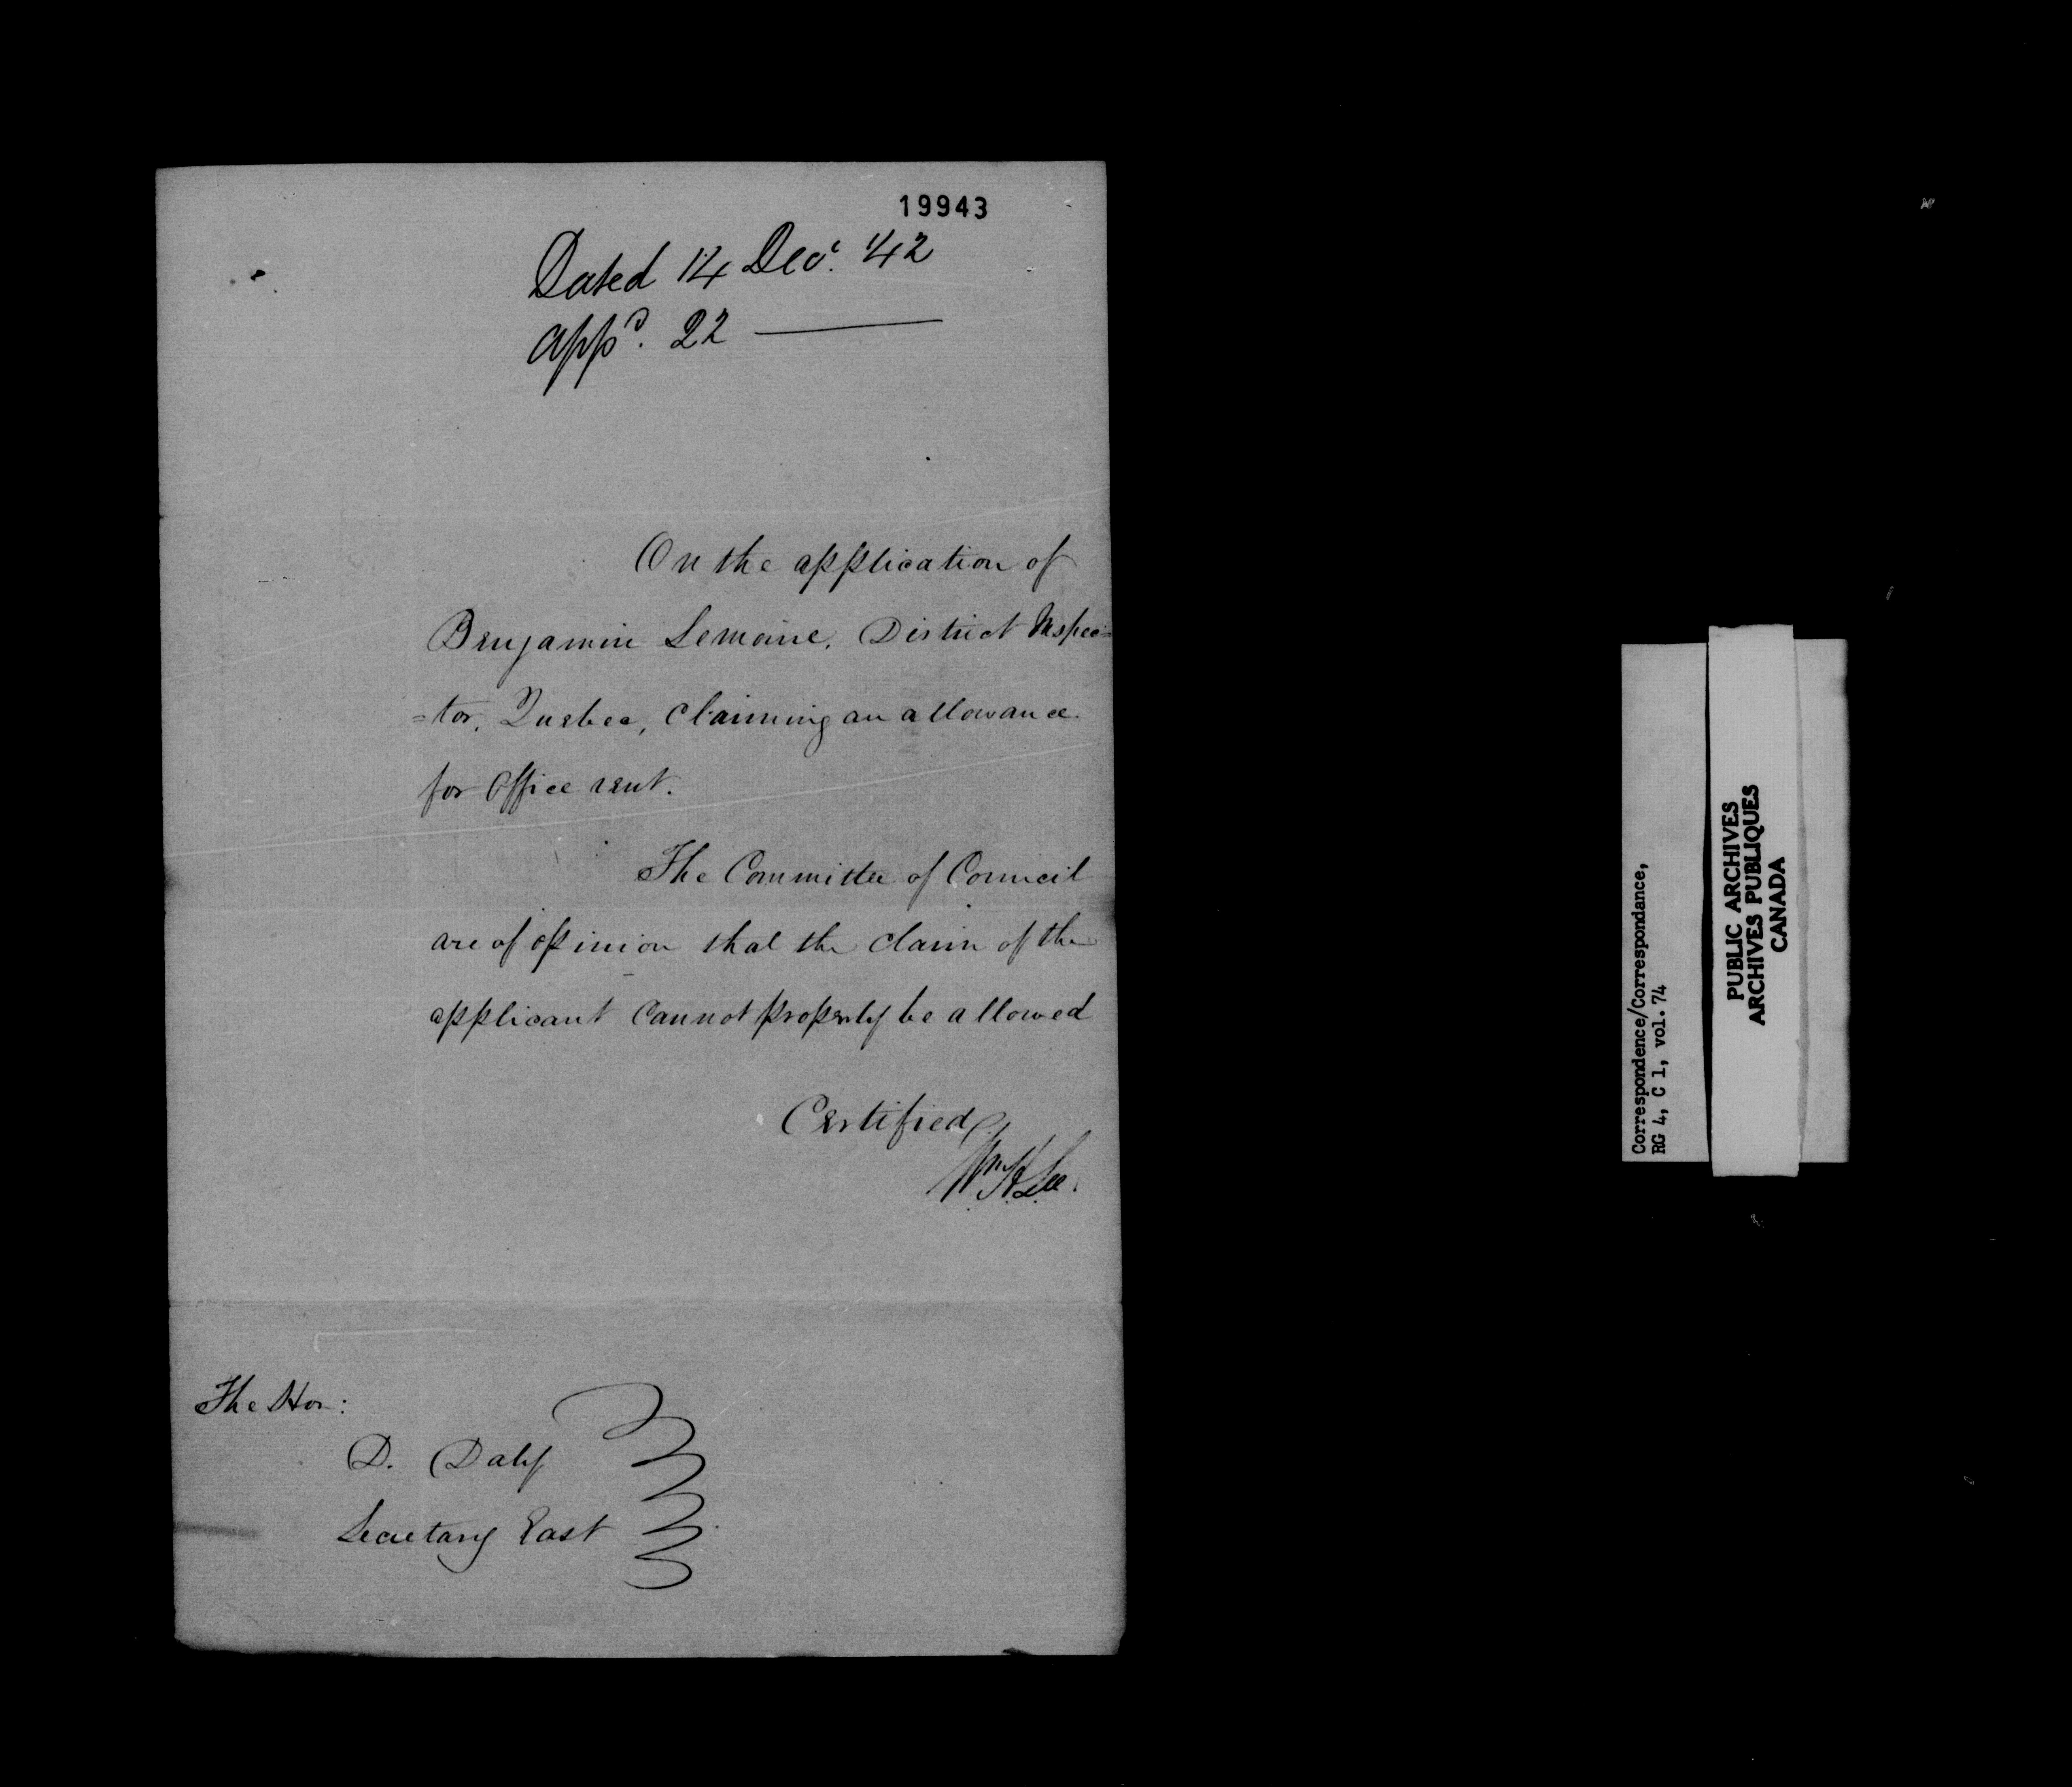 19943
Dated 14 Decr. 42
appd. 22 ———
On the application of
Benjamin Lemoine, District Inspec=
=tor, Quebec, claiming an allowance
for Office rent.
The Committee of Council
are of opinion that the claim of the
applicant cannot properly be allowed
Certified,
Wm. H. Lee.
The Hon:
D. Daly
Secretary East
Correspondence/Correspondance,
RG 4, C 1, vol. 74
PUBLIC ARCHIVES
ARCHIVES PUBLIQUES
CANADA